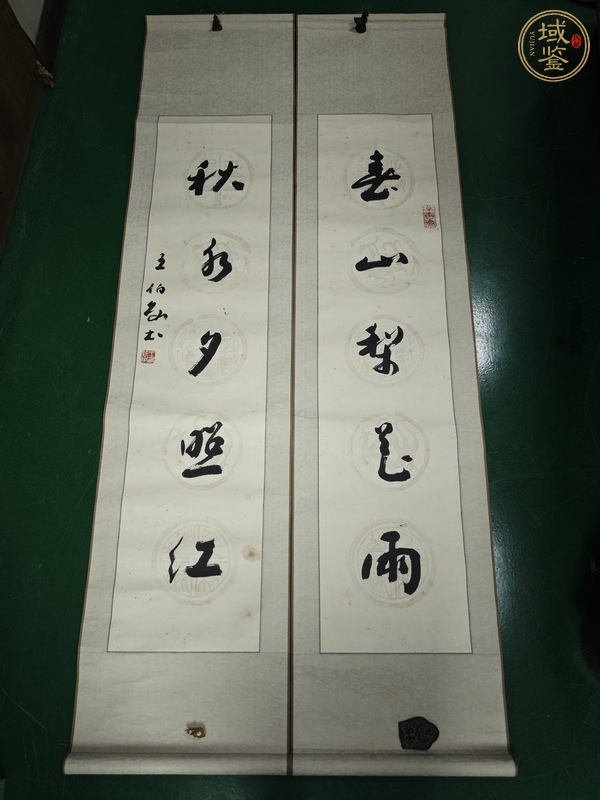 春山梨花雨
秋水夕照红
王伯敏书
域鉴
YUJIAN